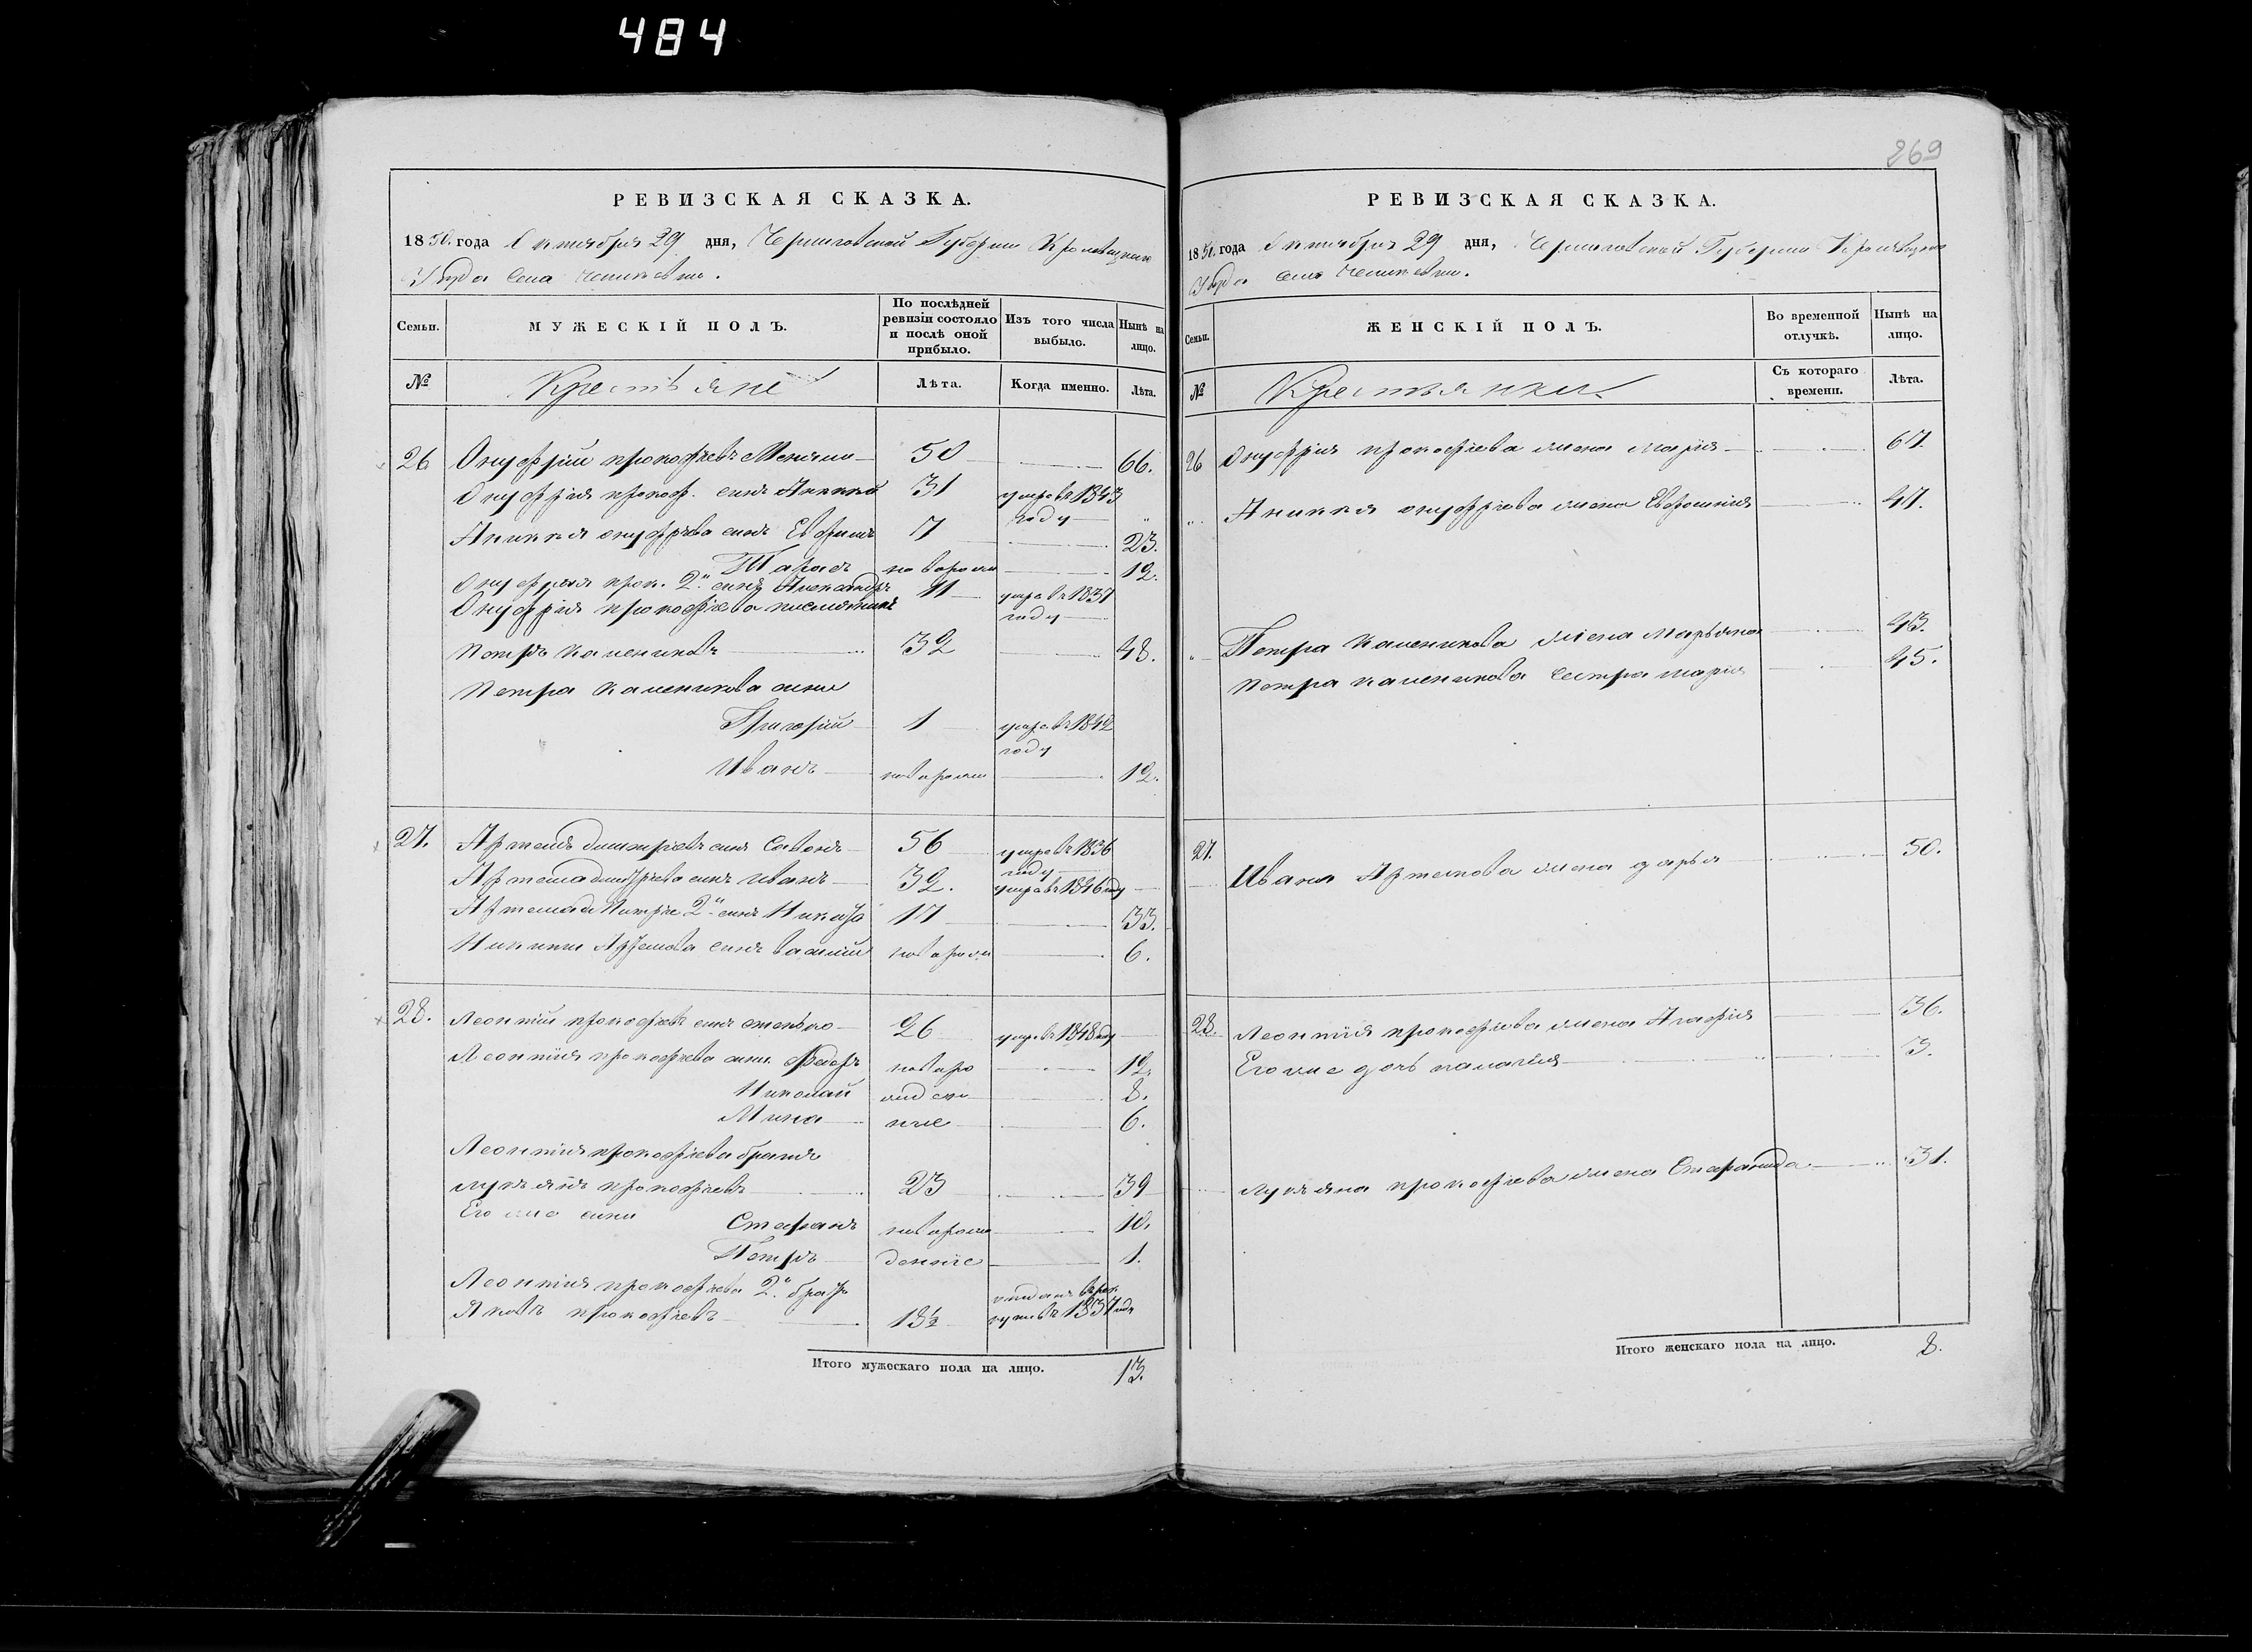 484
РЕВИЗСКАЯ СКАЗКА.
1850 года Октября 29 дня, Черниговской Губернии Кролевецкаго
Уезда Села
Семьи.
МУЖЕСКІЙ ПОЛЪ.
По послѣдней ревизіи состояло и послѣ оной прибыло.
Изъ того числа выбыло.
Нынѣ на лицо.
№ Крестьяне Лѣта. Когда именно. Лѣта.
26 Онуфрій прокофіевъ 50 66.
Онуфрія прокоф. синъ Аникій 31 умре въ 1843
году
Аникія онуфріева синъ Евфимъ 7 23.
Тарасъ новорож 12.
Онуфрія прок. 2й синъ Александръ 11 умре въ 1837
Онуфрія прокофіева племянникъ году
Петръ Калениковъ 32 48.
Петра Каленикова сини
Григорій 1 умре въ 1842
году
Иванъ новорож 12.
27. Артемъ дмитріевъ синъ 56 умре въ 1836
году
Артема дмитріева синъ Иванъ 32. умре въ 1846 году
Артема 2й синъ Никита 17 33.
Никиты Артемова синъ василій новорож 6.
28. Леонтій прокофіевъ синъ 26 умре въ 1848 году
Леонтія прокофіева сини Федоръ новоро 12.
Николай жден 8.
Мина ние 6.
Леонтія прокофіева братъ
лукьянъ прокофіевъ 23 39
Его же сини Стефанъ новорож 10.
Петръ деніе 1.
Леонтія прокофіева 2й братъ отданъ в рек
Яковъ прокофіевъ 18½ руты въ 1837 году
Итого мужескаго пола на лицо. 13.
269
РЕВИЗСКАЯ СКАЗКА.
1850 года Октября 29 дня, Черниговской Губернии Кролевецкаго
Уезда Села
Семьи.
ЖЕНСКІЙ ПОЛЪ.
Во временной отлучкѣ.
Нынѣ на лицо.
№ Крестьянки Съ котораго времени. Лѣта.
26 Онуфрія прокофіева жена марія 67.
Аникія онуфріева жена 47.
Петра Каленикова жена Марьяна 43.
Петра Каленикова сестра марія 45.
27. Ивана Артемова жена дарья 50.
28. Леонтія прокофіева жена Агафія 36.
Его же дочь палагія 3.
лукьяна прокофіева жена Стефанида 31.
Итого женскаго пола на лицо. 8.